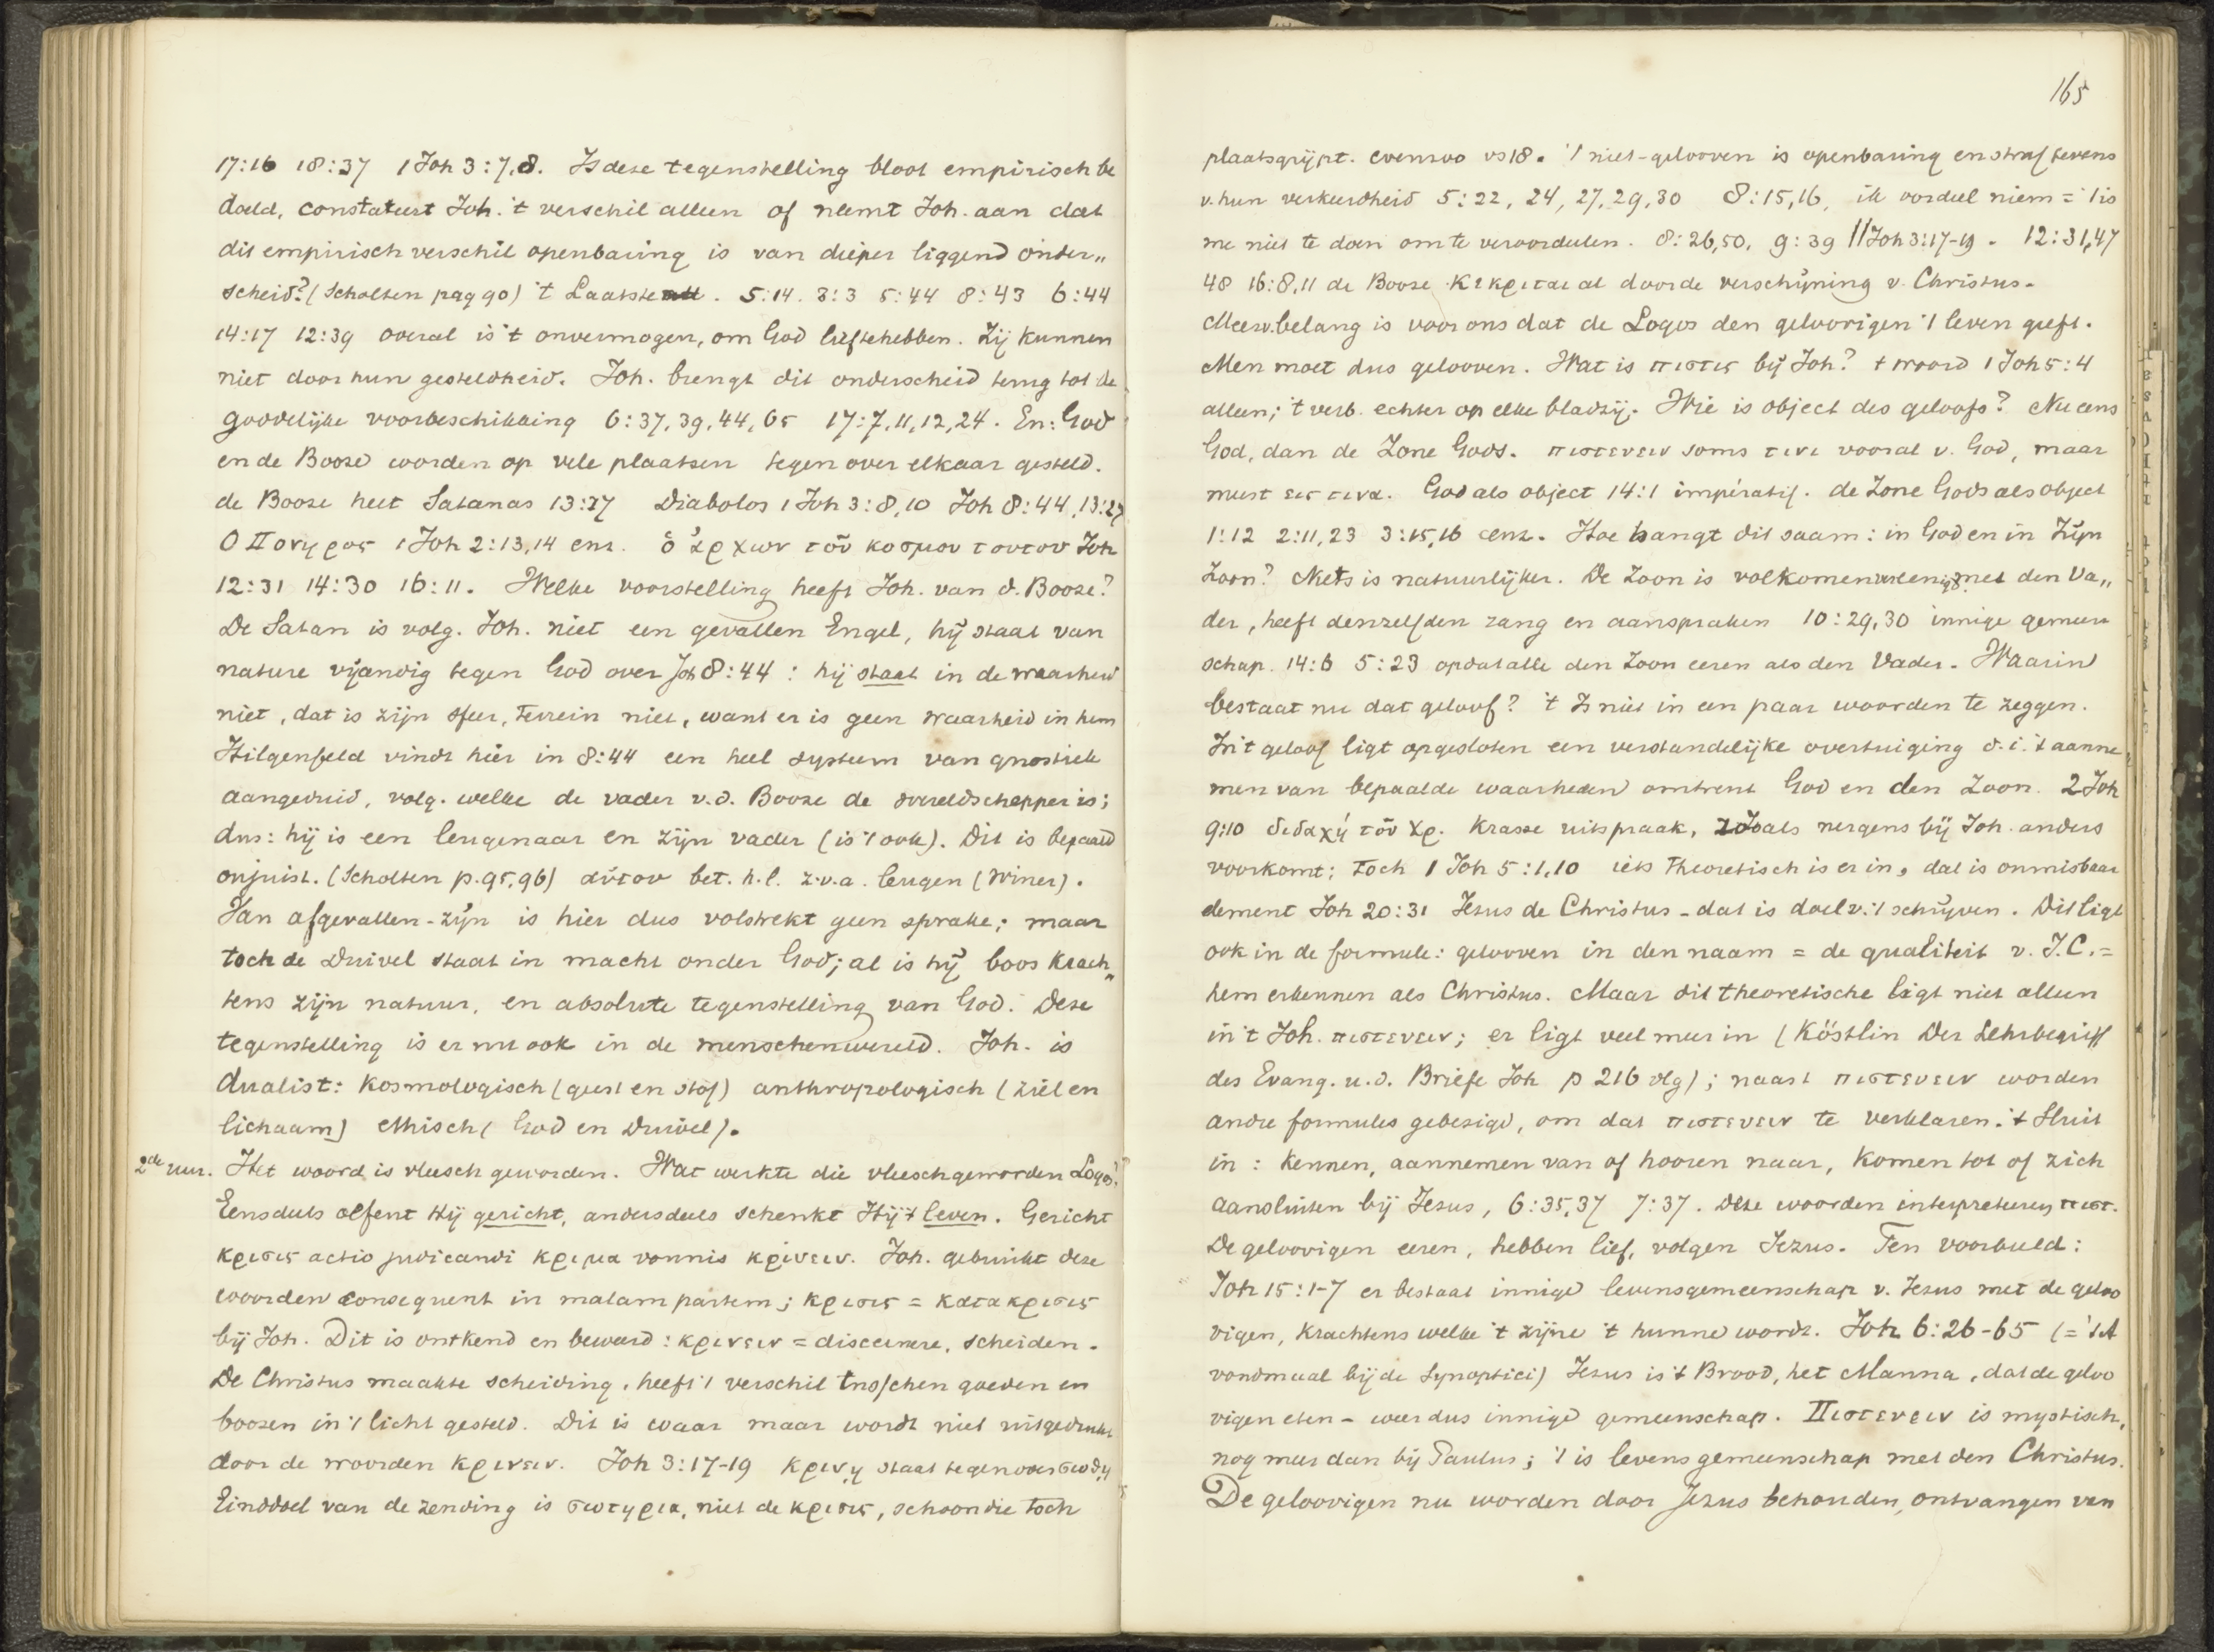 17:16 18:37 1 Joh 3:7,8. Is deze tegenstelling bloot empirisch be
doeld, constateert Joh. 't verschil alleen of neemt Joh. aan dat
dit empirisch verschil openbaring is van dieper liggend onder„
scheid? (Scholten pag 90) 't Laatste. 5:14. 3:3 5:44 8:43 6:44
14:17 12:39 overal is 't onvermogen, om God lief te hebben. Zij kunnen
niet door hun gesteldheid. Joh. brengt dit onderscheid terug tot de
goddelijke voorbeschikking 6:37,39,44,65 17:7,11,12,24. En: God
en de Booze worden op vele plaatsen tegenover elkaar gesteld.
de Booze heet Satanas 13:27 Diabolos 1 Joh 3:8,10 Joh 8:44, 13:27
Ο Πονηρος 1 Joh 2:13,14 enz. ὁ ἀρχων τοῦ κοσμου τουτου Joh
12:31 14:30 16:11. Welke voorstelling heeft Joh. van d. Booze?
De Satan is volg. Joh. niet een gevallen Engel, hij staat van
nature vijandig tegen God over Joh 8:44: hij staat in de waarheid
niet, dat is zijn sfeer, terrein niet, want er is geen waarheid in hem
Hilgenfeld vindt hier in 8:44 een heel systeem van gnostiek
aangeduid, volg. welke de vader v.d. Booze de wereldschepper is;
dus: hij is een leugenaar en zijn vader (is 't ook). Dit is bepaald
onjuist. (Scholten p. 95,96) αὐτου bet. h.l. z.v.a. leugen (Winer).
Van afgevallen-zijn is hier dus volstrekt geen sprake; maar
toch de Duivel staat in macht onder God; al is hij boos krach„
tens zijn natuur, en absolute tegenstelling van God. Deze
tegenstelling is er nu ook in de menschenwereld. Joh. is
dualist: kosmologisch (geest en stof) anthropologisch (ziel en
lichaam) ethisch (God en Duivel).
2de uur. Het woord is vleesch geworden. Wat werkte die vleeschgeworden Logos?
Eensdeels oefent Hij gericht, andersdeels schenkt Hij 't leven. Gericht
κρισις actio judicandi κριμα vonnis κρίνειν. Joh. gebruikt deze
woorden consequent in malam partem; κρισις = κατακρισις
bij Joh. Dit is ontkend en beweerd: κρινειν = discernere, scheiden.
De Christus maakte scheiding, heeft 't verschil tusschen goeden en
boozen in 't licht gesteld. Dit is waar maar wordt niet uitgedrukt
door de woorden κρινειν. Joh 3:17-19 κρινῃ staat tegenover σωθῃ
Einddoel van de zending is σωτηρια, niet de κρισις, schoon die toch
165
plaatsgrijpt. evenzoo vs 18. 't niet-gelooven is openbaring en straf tevens
v. hun verkeerdheid 5:22, 24, 27, 29, 30 8:15,16, ik oordeel niem = 't is
me niet te doen om te veroordeelen. 8:26,50, 9:39 // Joh 3:17-19. 12:31,47
48 16:8,11 de Booze κεκριται al door de verschijning v. Christus.
Meer v. belang is voor ons dat de Logos den geloovigen 't leven geeft.
Men moet dus gelooven. Wat is πιστις bij Joh? 't woord 1 Joh 5:4
alleen; 't verb. echter op elke bladzij. Wie is object des geloofs? Nu eens
God, dan de Zone Gods. πιστευειν soms τινι vooral v. God, maar
meest εις τινα. God als object 14:1 imperatif. de Zone Gods als object
1:12 2:11,23 3:15,16 enz. Hoe hangt dit saam: in God en in Zijn
Zoon? Niets is natuurlijker. De Zoon is volkomen vereenigd met den Va„
der, heeft denzelfden rang en aanspraken 10:29,30 innige gemeen
schap. 14:6 5:23 opdat alle den Zoon eeren als den Vader. Waarin
bestaat nu dat geloof? 't Is niet in een paar woorden te zeggen.
In 't geloof ligt opgesloten een verstandelijke overtuiging d.i. 't aanne
men van bepaalde waarheden omtrent God en den Zoon. 2 Joh
9:10 διδαχή τοῦ Χρ. Krasse uitspraak, zooals nergens bij Joh. anders
voorkomt; toch 1 Joh 5:1,10 iets theoretisch is er in, dat is onmisbaar
element Joh 20:31 Jezus de Christus - dat is doel v. 't schrijven. Dit ligt
ook in de formule: gelooven in den naam = de qualiteit v. J.C. =
hem erkennen als Christus. Maar dit theoretische ligt niet alleen
in 't Joh. πιστευειν; er ligt veel meer in (Köstlin Der Lehrbegriff
des Evang. u.d. Briefe Joh p 216 vlg); naast πιστευειν worden
andre formules gebezigd, om dat πιστευειν te verklaren. 't Sluit
in: kennen, aannemen van of hooren naar, komen tot of zich
aansluiten bij Jezus, 6:35,37 7:37. Deze woorden interpreteeren πιστ.
De geloovigen eeren, hebben lief, volgen Jezus. Ten voorbeeld:
Joh 15:1-7 er bestaat innige levensgemeenschap v. Jezus met de geloo
vigen, krachtens welke 't zijne 't hunne wordt. Joh 6:26-65 (= 't A
vondmaal bij de Synoptici) Jezus is 't Brood, het Manna, dat de geloo
vigen eten - weer dus innige gemeenschap. Πιστευειν is mystisch,
nog meer dan bij Paulus; 't is levensgemeenschap met den Christus.
De geloovigen nu worden door Jezus behouden, ontvangen van